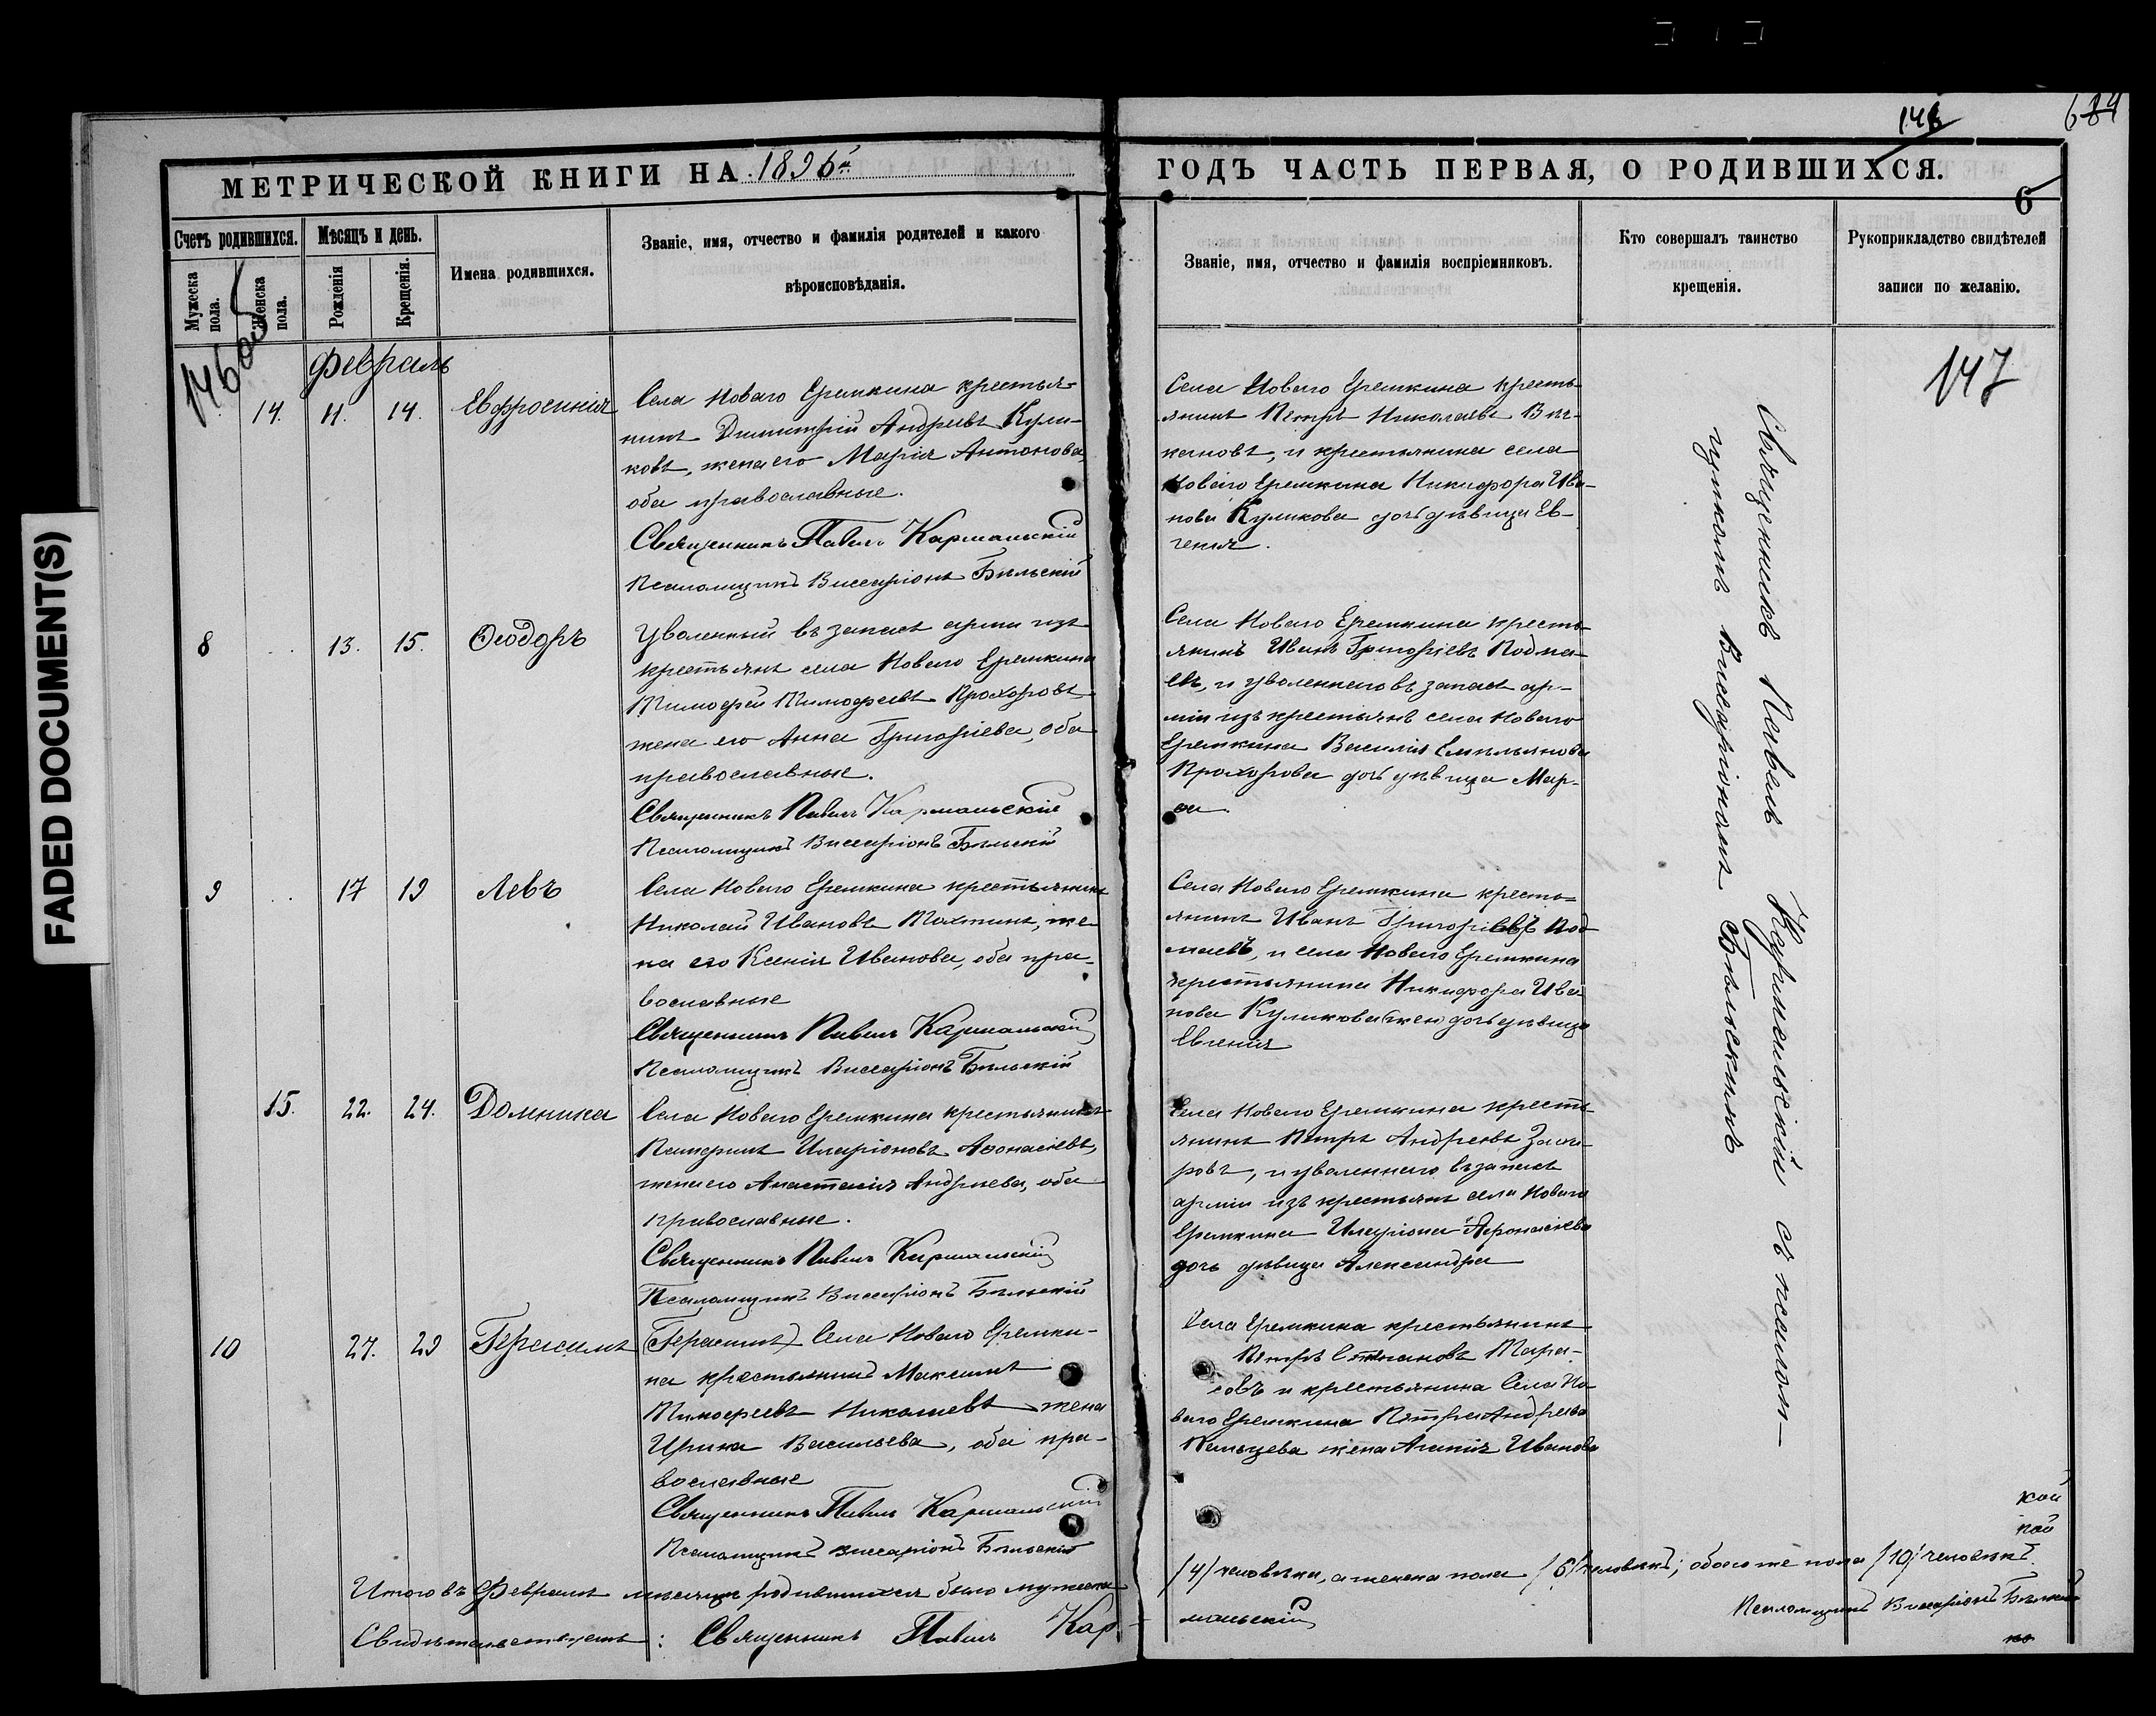 148
684
МЕТРИЧЕСКОЙ КНИГИ НА 1896й
ГОДЪ ЧАСТЬ ПЕРВАЯ, О РОДИВШИХСЯ.
6
Счетъ родившихся.
Мѣсяцъ и день.
Имена родившихся.
Званіе, имя, отчество и фамилія родителей и какого
вѣроисповѣданія.
Мужеска пола.
Женска пола.
Рожденія
Крещенія.
Званіе, имя, отчество и фамилія воспріемниковъ.
Кто совершалъ таинство
крещенія.
Рукоприкладство свидѣтелей
записи по желанію.
146 об
147
Февраль
14. 11. 14. Евфросинія
Села Новаго Еремкина крестья-
нинъ Димитрій Андреевъ Кули-
ковъ, жена его Марія Антонова,
оба православные.
Священникъ Павелъ Кармальскій
Псаломщикъ Виссаріонъ Бѣльскій
Села Новаго Еремкина кресть-
янинъ Петръ Николаевъ
кановъ, и крестьянина села
Новаго Еремкина Никифора Ива-
нова Куликова дочь дѣвица Ев-
генія.
8 13. 15. Ѳеодоръ
Уволенный въ запасъ арміи изъ
крестьянъ села Новаго Еремкина
Тимофей Тимофеевъ Прохоровъ
жена его Анна Григоріева, оба
православные.
Священникъ Павелъ Кармальскій
Псаломщикъ Виссаріонъ Бѣльскій
Села Новаго Еремкина кресть-
янинъ Иванъ Григоріевъ Подма-
евъ, и уволеннаго въ запасъ ар-
міи изъ крестьянъ села Новаго
Еремкина Василія Емельянова
Прохорова дочь дѣвица Мар-
ѳа.
9 17 19 Левъ
Села Новаго Еремкина крестьянинъ
Николай Ивановъ Тахтинъ, же-
на его Ксенія Иванова, оба пра-
вославные
Священникъ Павелъ Кармальскій
Псаломщикъ Виссаріонъ Бѣльскій
Села Новаго Еремкина кресть-
янинъ Иванъ Григоріевъ Под-
маевъ, и села Новаго Еремкина
крестьянина Никифора Ива-
нова Куликова (жен) дочь дѣвица
Евгенія
15. 22. 24. Домника
Села Новаго Еремкина крестьянинъ
Иларіоновъ Аѳонасіевъ,
жена его Анастасія Андреева, оба
православные.
Священникъ Павелъ Кармальскій
Псаломщикъ Виссаріонъ Бѣльскій
Села Новаго Еремкина кресть-
янинъ Петръ Андреевъ Заха-
ровъ, и уволеннаго въ запасъ
арміи изъ крестьянъ села Новаго
Еремкина Иларіона Афонасіева
дочь дѣвица Александра
10 27. 29 Герасимъ
(Герасимъ) Села Новаго Еремки-
на крестьянинъ Максимъ
Тимофеевъ Николаевъ жена
Ирина Васильева, оба пра-
вославные
Священникъ Павелъ Кармальскій
Псаломщикъ Виссаріонъ Бѣльскій
Села Еремкина крестьянинъ
Петръ Степановъ Тара-
совъ и крестьянина Села Но-
ваго Еремкина Петра Андреева
жена Агапія Иванова
Священникъ Павелъ Кармальскій съ псалом-
щикомъ Виссаріономъ Бѣльскимъ
Итого въ Февралѣ мѣсяцѣ родившихся было мужеска
/4/ человѣка, а женска пола /6/ человѣкъ; обоего же пола /10/ человѣкъ.
Свидѣтельствуемъ: Священникъ Павелъ Кар-
мальскій
Псаломщикъ Виссаріонъ Бѣльскій
FADED DOCUMENT(S)